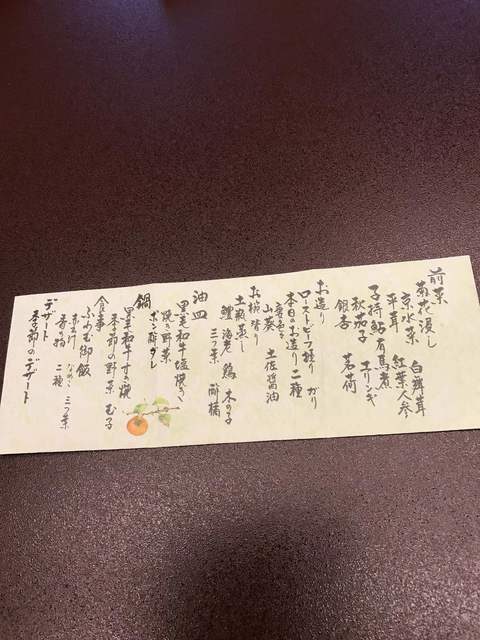 前菜
菊花浸し
京水菜 白舞茸
平茸 紅葉人参
子持鮎有馬煮
秋茄子 エリンギ
銀杏 茗荷
お造り
ローストビーフ握り がり
本日のお造り二種
山葵 土佐醤油
お椀替り
土瓶蒸し
鱧 海老 鶏 木の子
三つ葉 酢橘
油皿
黒毛和牛塩焼き
焼き野菜
ポン酢タレ
鍋
黒毛和牛すき焼
季節の野菜 玉子
食事
御飯
赤出汁 三つ葉
香の物 二種
デザート
季節のデザート